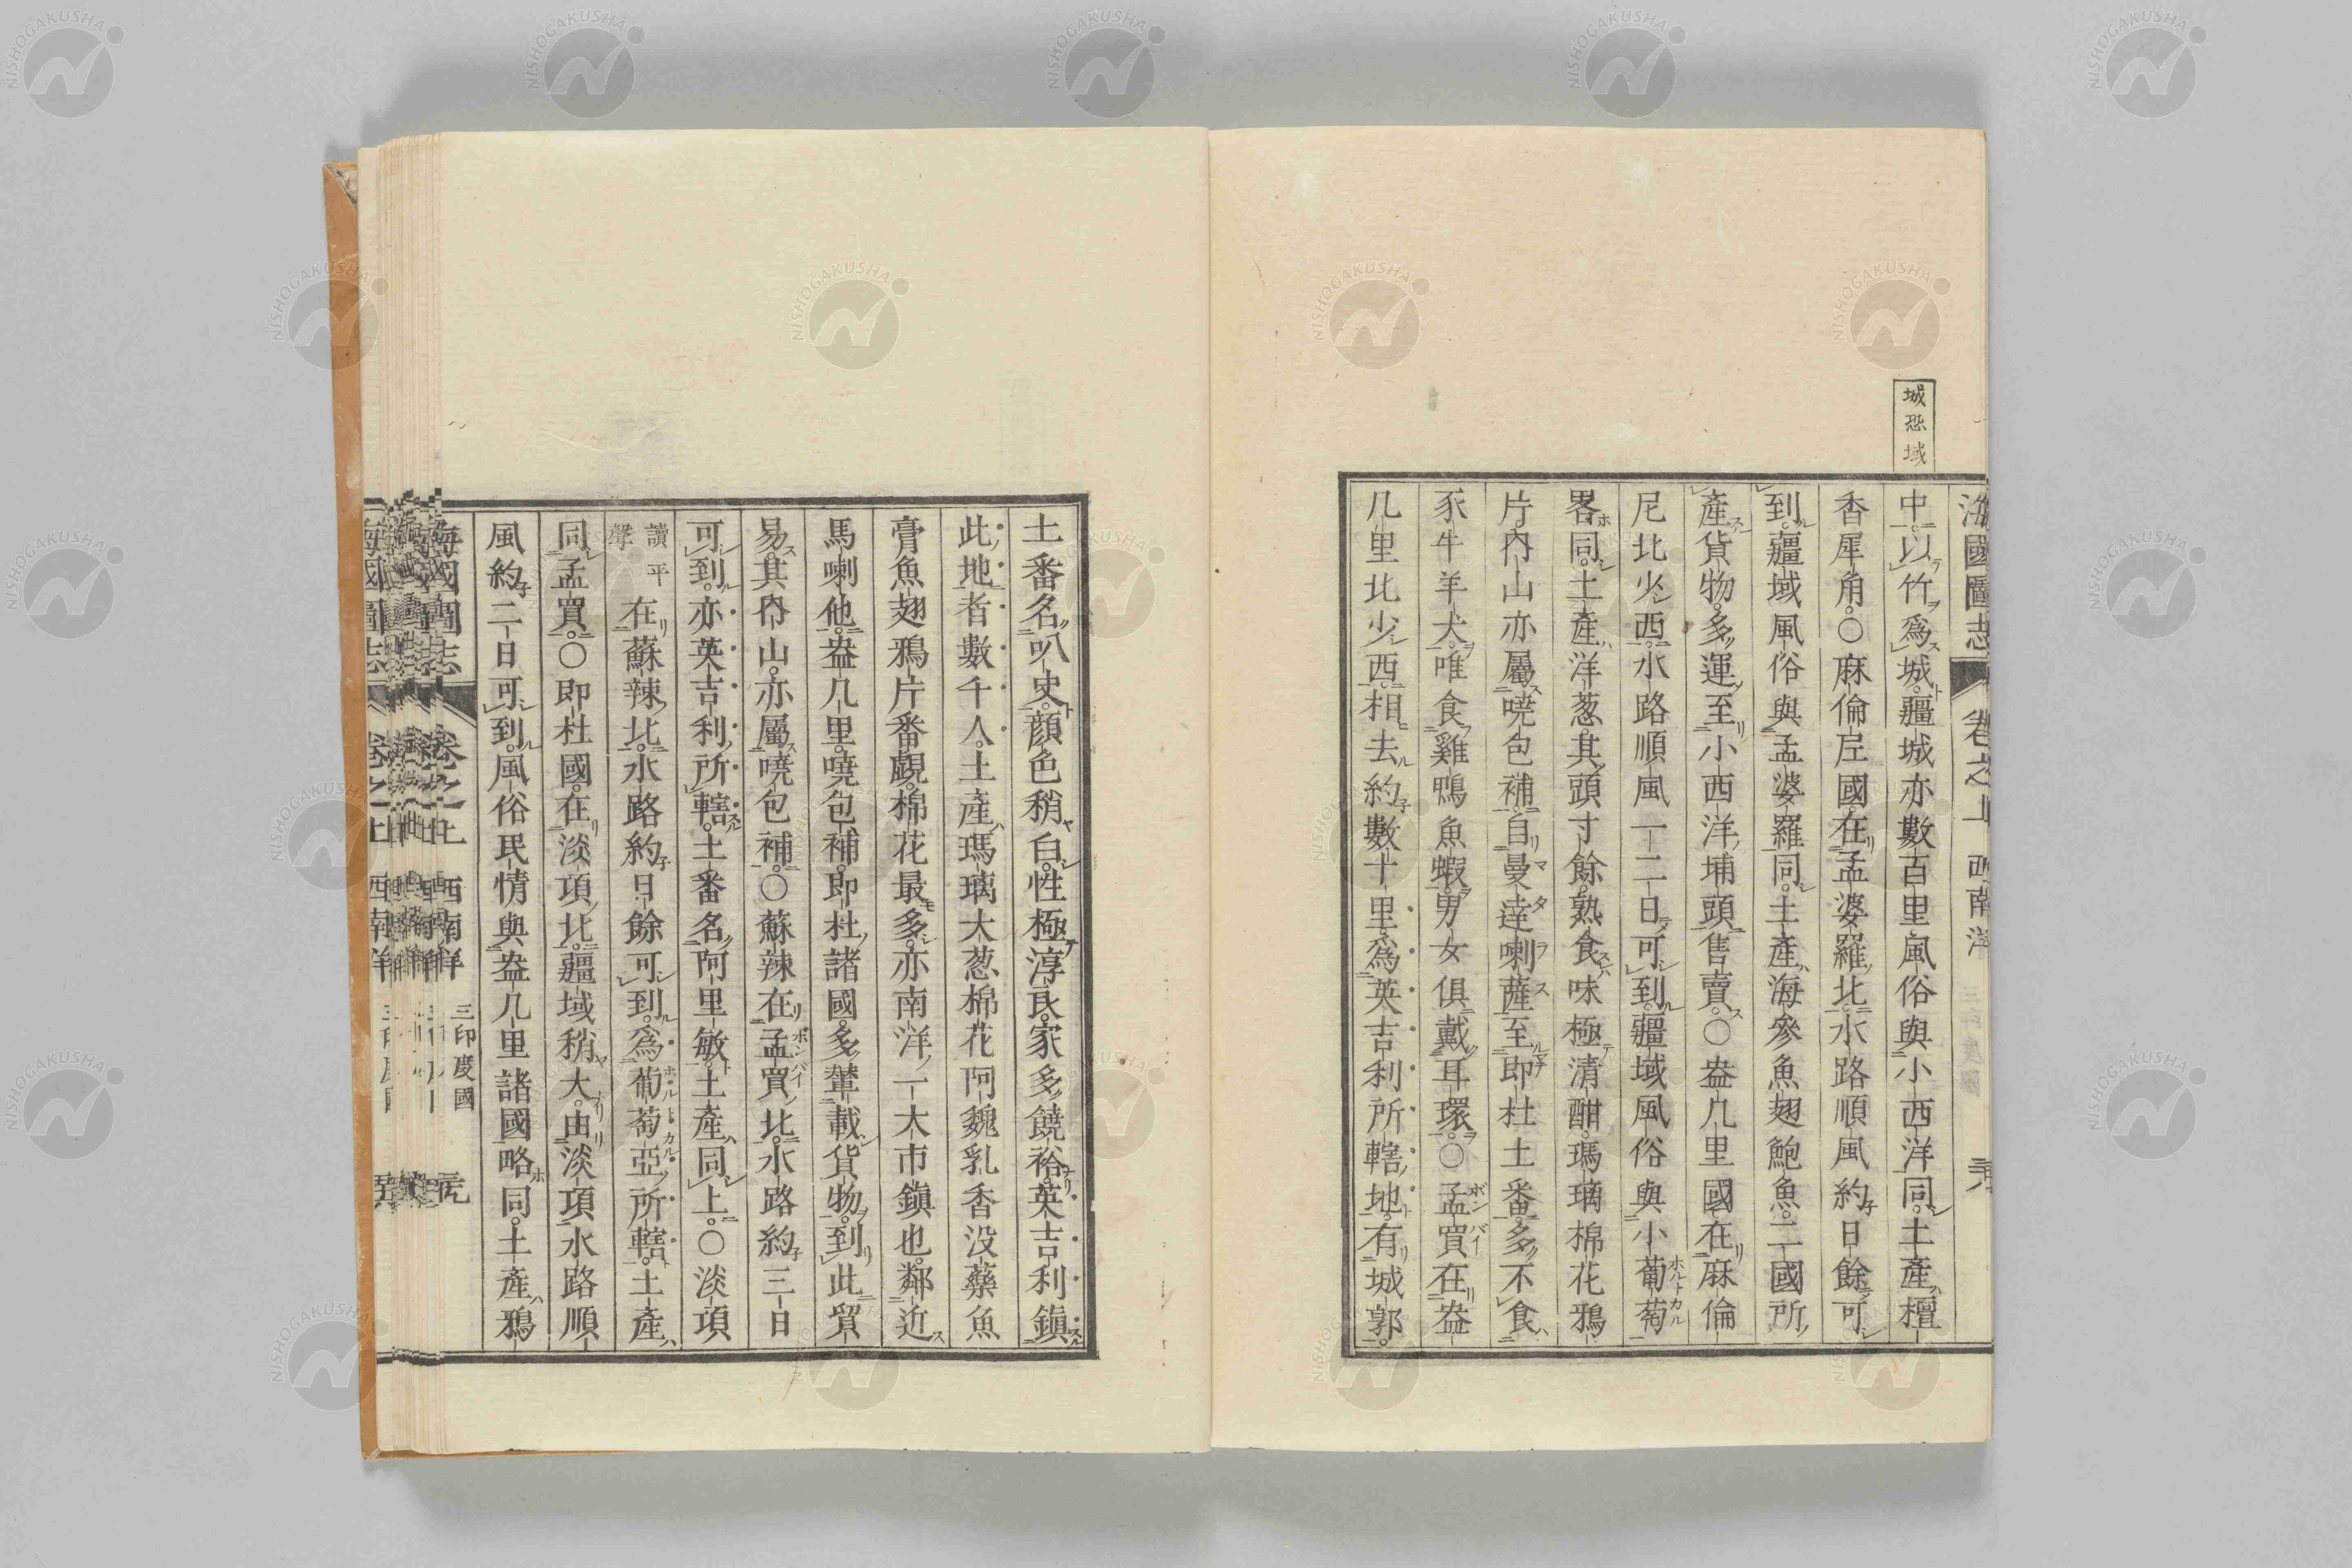 城恐域
海國圖志 卷之上 西南洋
中以竹爲城疆城亦數百里風俗與小西洋同土產檀
香犀角〇麻倫尼國在孟婆羅北水路順風約日餘可
到疆域風俗與孟婆羅同土產海參魚翅鮑魚二國所
產貨物多運至小西洋埔頭售賣〇盎几里國在麻倫
尼北少西水路順風一二日可到疆域風俗與小葡萄
畧同土產洋葱其頭寸餘熟食味極清酣瑪瑀棉花鴉
片內山亦屬嘵包補自曼達喇薩至即杜土番多不食
豕牛羊犬唯食雞鴨魚蝦男女俱戴耳環〇孟買在盎
几里北少西相去約數十里爲英吉利所轄地有城郭
土番名叭史顏色稍白性極淳良家多饒裕英吉利鎮
此地者數千人土產瑪瑀大葱棉花阿魏乳香沒藥魚
膏魚翅鴉片番覼棉花最多亦南洋一大市鎮也鄰近
馬喇他盎几里嘵包補即杜諸國多輦載貨物到此貿
易其內山亦屬嘵包補〇蘇辣在孟買北水路約三日
可到亦英吉利所轄土番名阿里敏土產同上〇淡項
讀平聲在蘇辣北水路約日餘可到爲葡萄亞所轄土產
同孟買〇即杜國在淡項北疆域稍大由淡項水路順
風約二日可到風俗民情與盎几里諸國略同土產鴉
海國圖志 卷之上 西南洋 三印度國